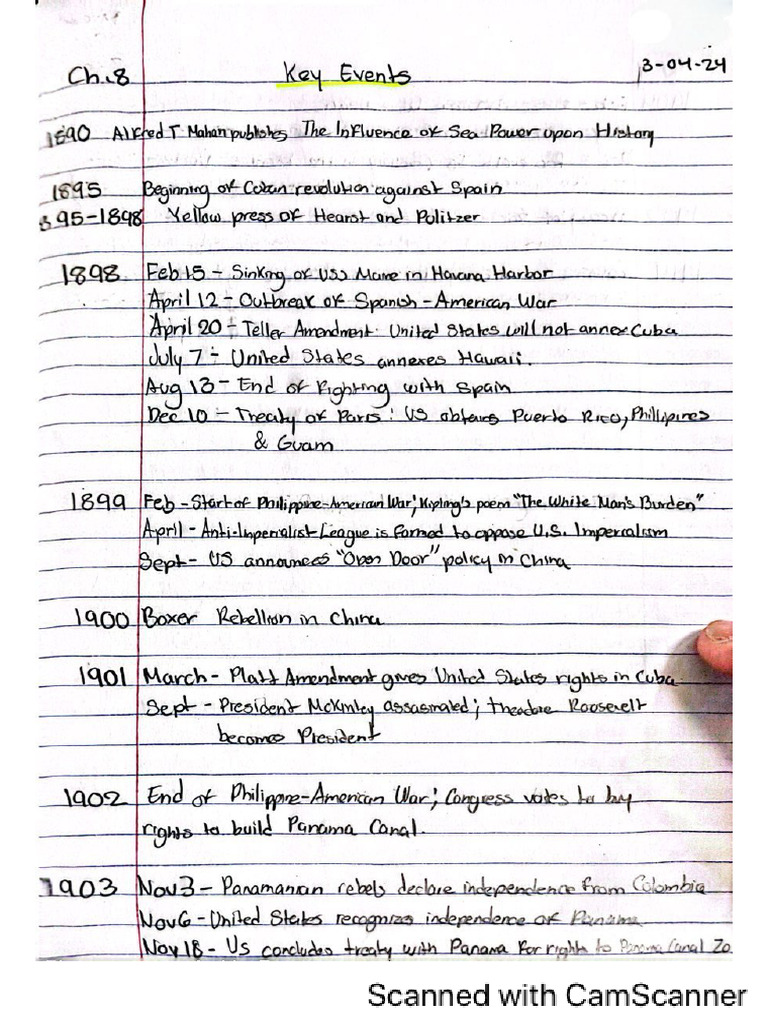 Ch.8 Key Events 3-04-24
1890 Alfred T Mahan publishes The Influence of Sea Power upon History
1895 Beginning of Cuban revolution against Spain
895-1898 Yellow press of Hearst and Politzer
1898 Feb 15 - Sinking of USS Maine in Havana Harbor
April 12 - Outbreak of Spanish-American War
April 20 - Teller Amendment: United States will not annex Cuba
July 7 - United States annexes Hawaii.
Aug 13 - End of Fighting with Spain
Dec 10 - Treaty of Paris: US obtains Puerto Rico, Phillipines
& Guam
1899 Feb - Start of Philippine-American War; Kipling's poem "The White Man's Burden"
April - Anti-Imperialist League is formed to oppose U.S. Imperialism
Sept - US announces "Open Door" policy in China
1900 Boxer Rebellion in China
1901 March - Platt Amendment gives United States rights in Cuba
Sept - President McKinley assasinated; Theodore Roosevelt
becomes President
1902 End of Philippine-American War; Congress votes to buy
rights to build Panama Canal.
1903 Nov 3 - Panamanian rebels declare independence from Colombia
Nov 6 - United States recognizes independence of Panama
Nov 18 - US concludes treaty with Panama for rights to Panama Canal Zo
Scanned with CamScanner